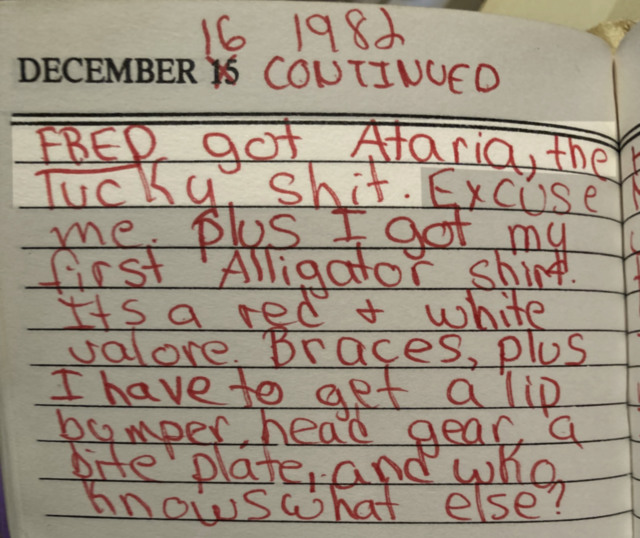 16 1982
DECEMBER 15 CONTINUED
FRED got Ataria, the
lucky shit. Excuse
me. plus I got my
first Alligator shirt.
Its a red + white
valore. Braces, plus
I have to get a lip
bumper, head gear, a
bite plate, and who
knows what else?